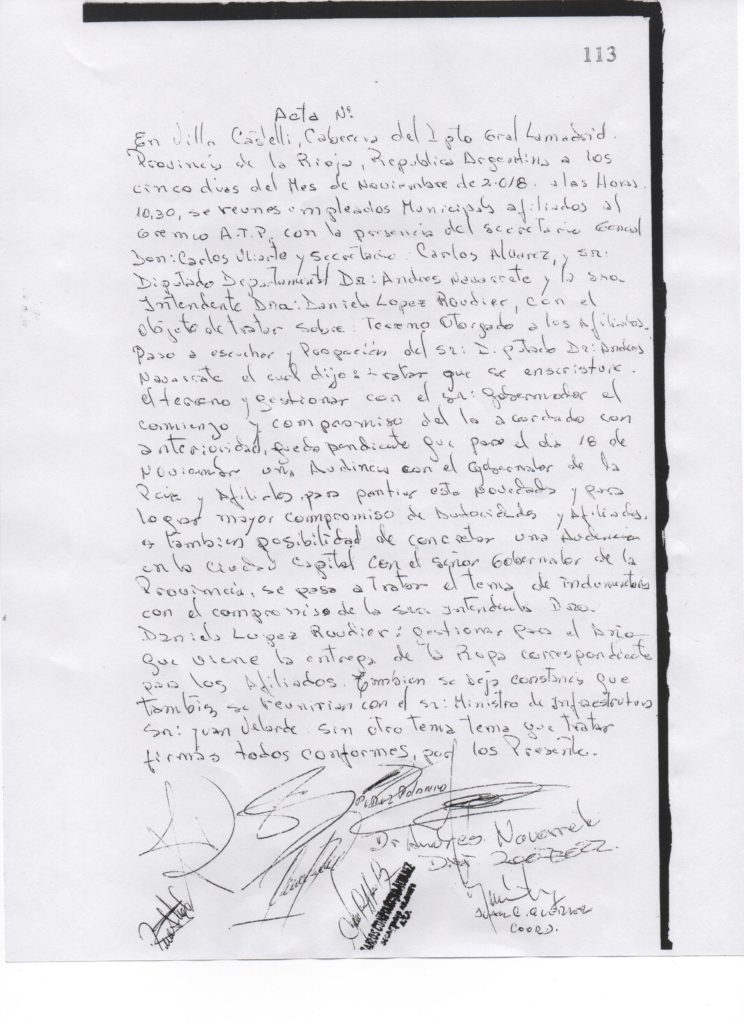 113
Acta Nº
En Villa Castelli, Cabecera del Dpto Gral Lamadrid.
Provincia de la Rioja, Republica Argentina a los
cinco dias del Mes de Noviembre de 2.018. a las Horas.
10,30, se reunes empleados Municipals afiliados al
Gremio A.T.P, con la presencia del secretario General
Don: Carlos Uriarte y secretario Carlos Alvarez, y sr:
Diputado Departamental Dr: Andres Navarrete y la sra.
Intendente Dra: Daniela Lopez Roudier, con el
objeto de tratar sobre: Terreno Otorgado a los Afiliados.
Paso a escuchar y del sr: Diputado Dr: Andres
Navarrete el cual dijo: tratar que se
el terreno y gestionar con el sr: Gobernador el
comienzo y compromiso del lo acordado con
anterioridad, quedo pendiente que para el dia 18 de
Noviembre una Audincia con el Gobernador de la
Pcia y Afiliados, para esta Novedads y para
lograr mayor compromiso de Autoridades y Afiliados.
o tambien posibilidad de concretar una Audiencia
en la Ciudad Capital con el señor Gobernador de la
Provincia, se paso a tratar el tema de indumentaria
con el compromiso de la sra: Intendenta Dra.
Daniela Lopez Roudier: gestionar para el Año
que viene la entrega de la Ropa correspondiente
para los Afiliados. Tambien se deja constancia que
tambien se reunirian con el sr: Ministro de Infraestrutura
Sr: Juan Velarde. sin otro tema tema que tratar
firmas todos conformes, por los Presente.
Dr Andres. Navarrete
DNI
JUAN C. QUINTERO
COORD.